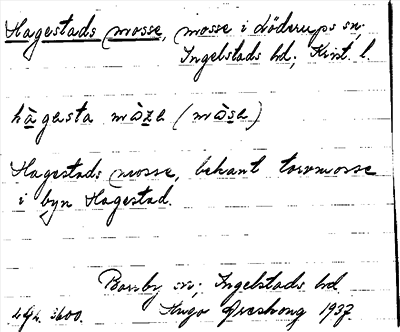 Hagestads mosse, mosse i Löderups sn,
Ingelstads hd; Krist. l.
hàgesta màze (màse)
Hagestads mosse, bekant torvmosse
i byn Hagestad.
Borrby sn; Ingelstads hd.
Ingo 1937